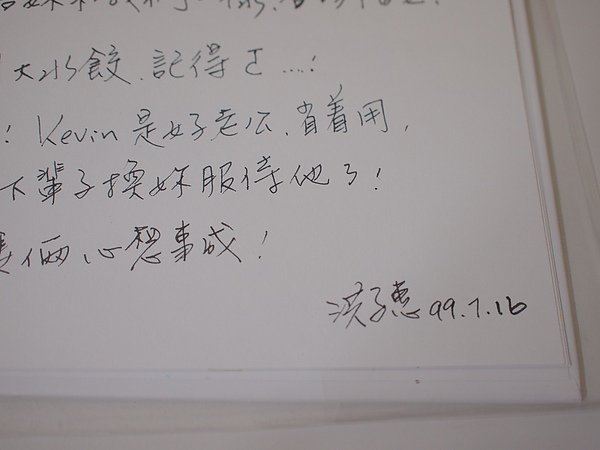 大水餃、記得ㄛ...!
! Kevin是好老公、省着用,
下輩子換妳服侍他了!
倆心想事成!
洪子惠 99.7.16